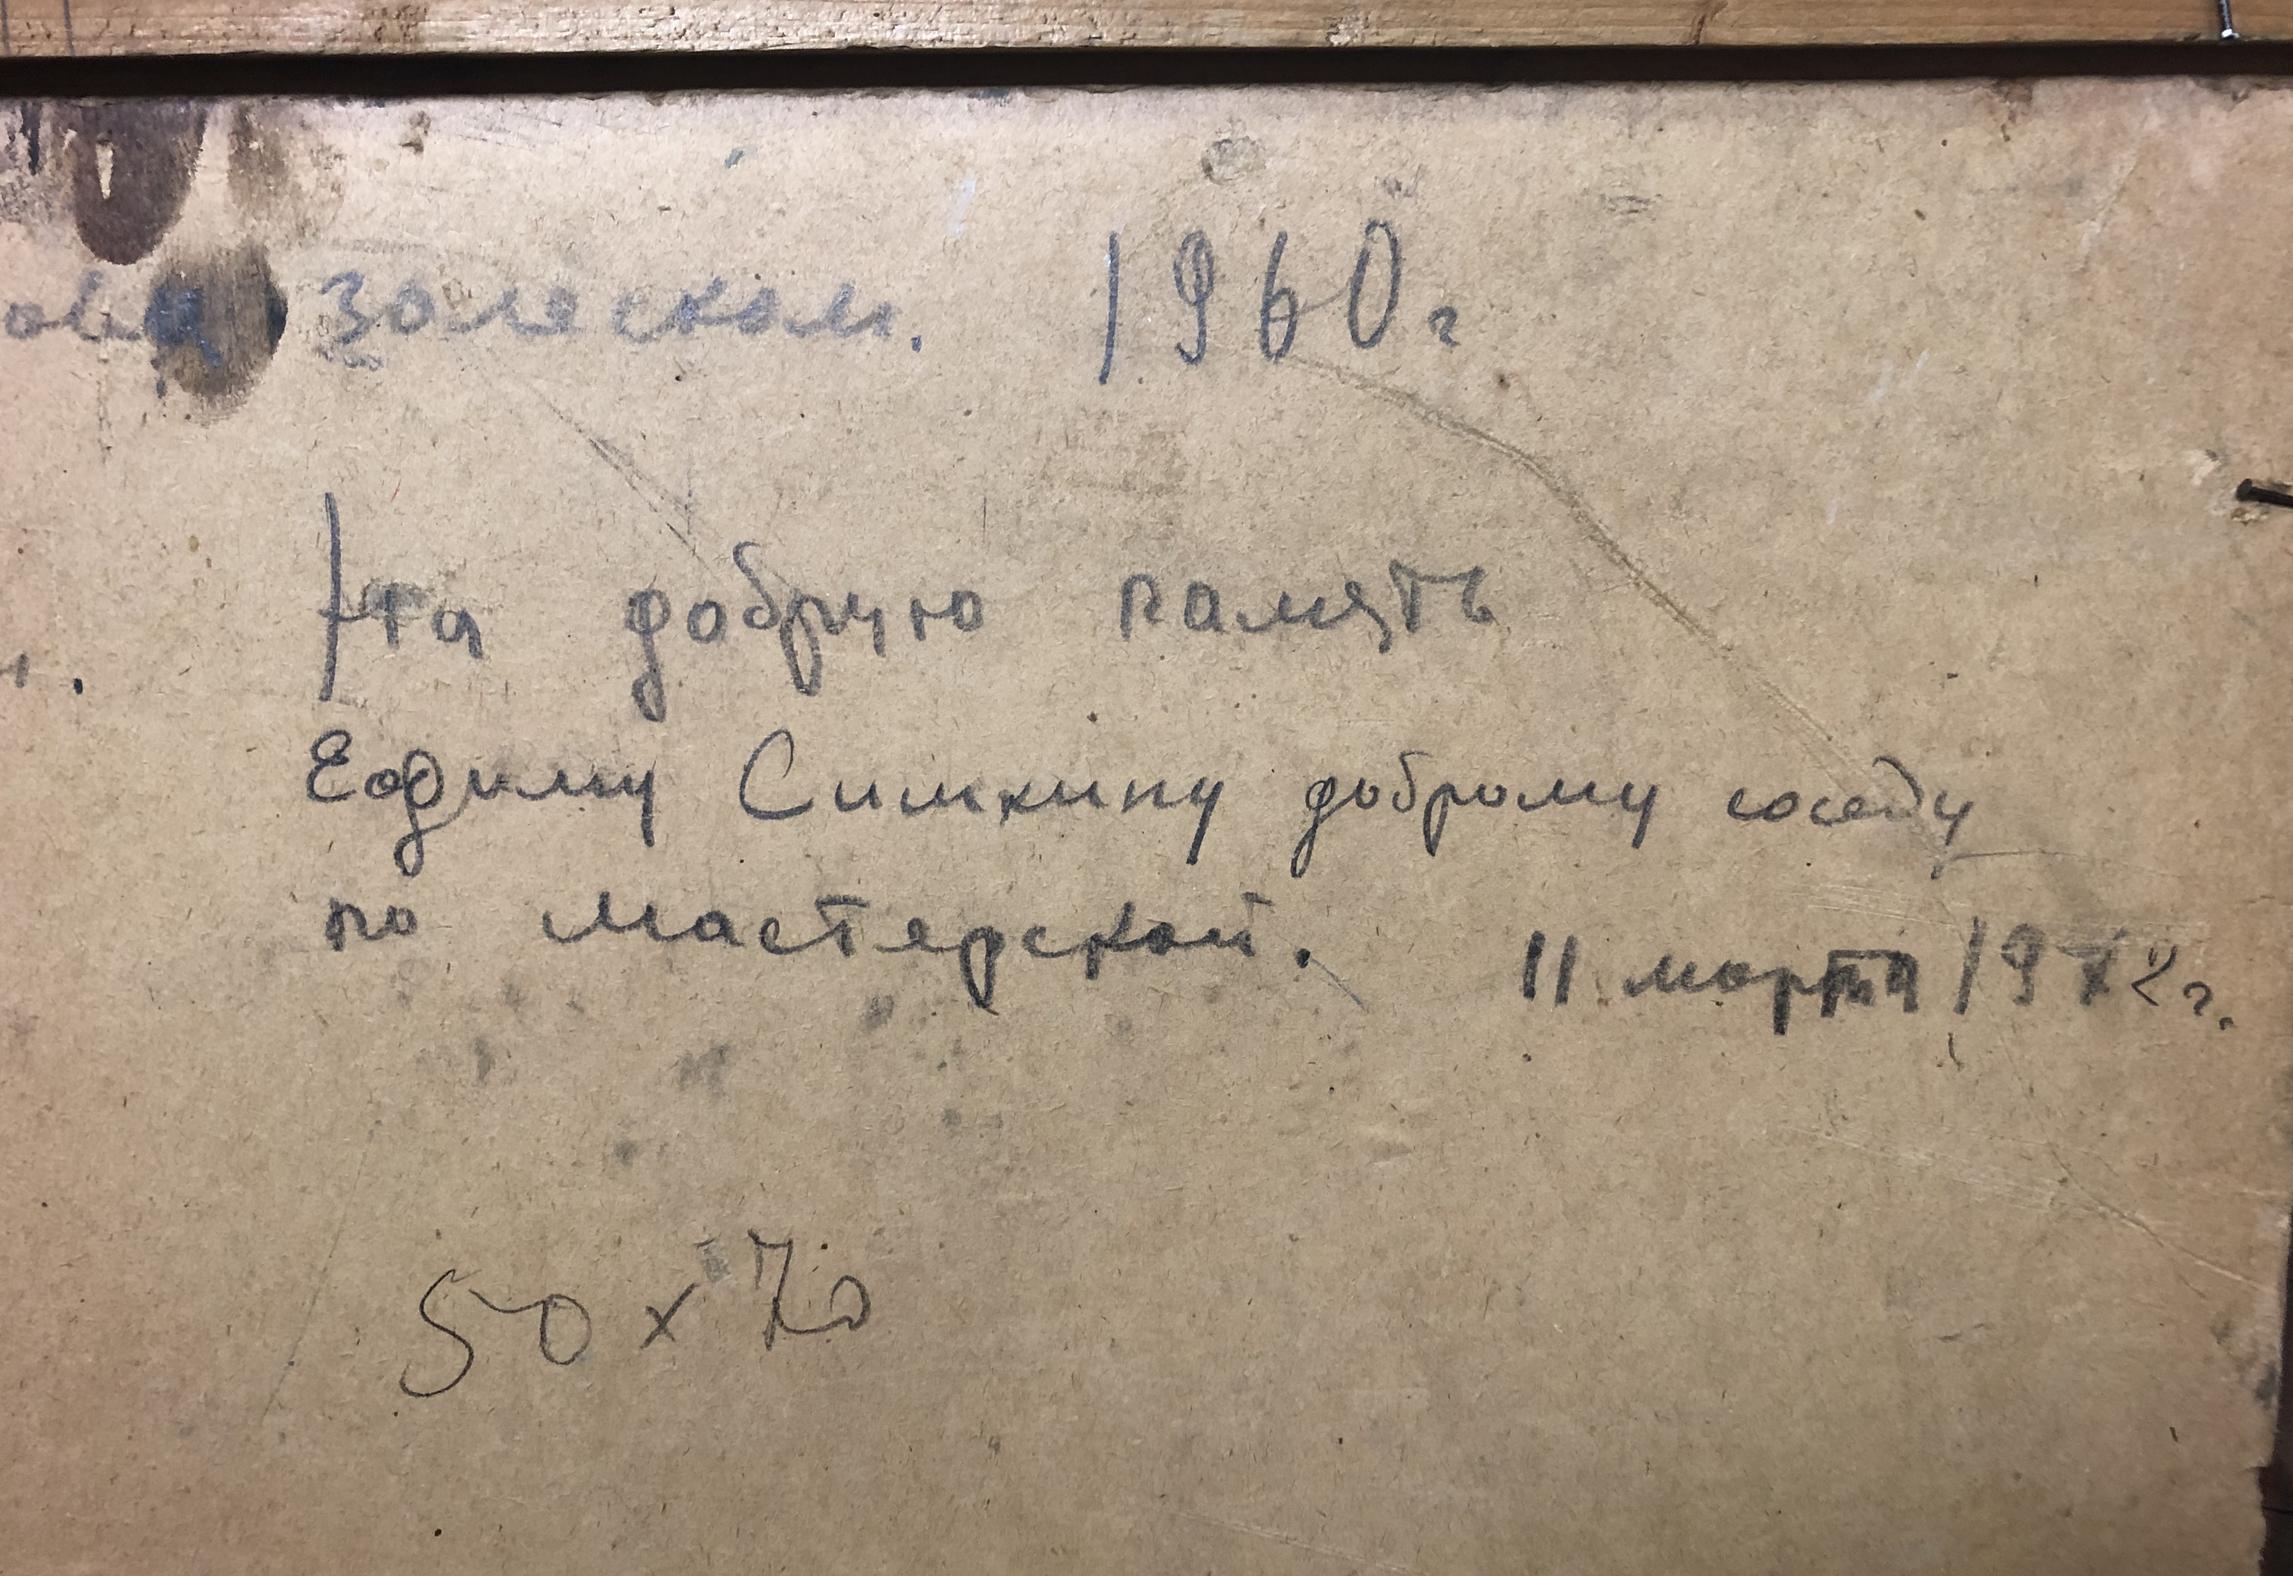 за леском. 1960г
На добрую память
Ефиму Симкину доброму соседу
по мастерской. 11 марта 1972г.
50 х 70